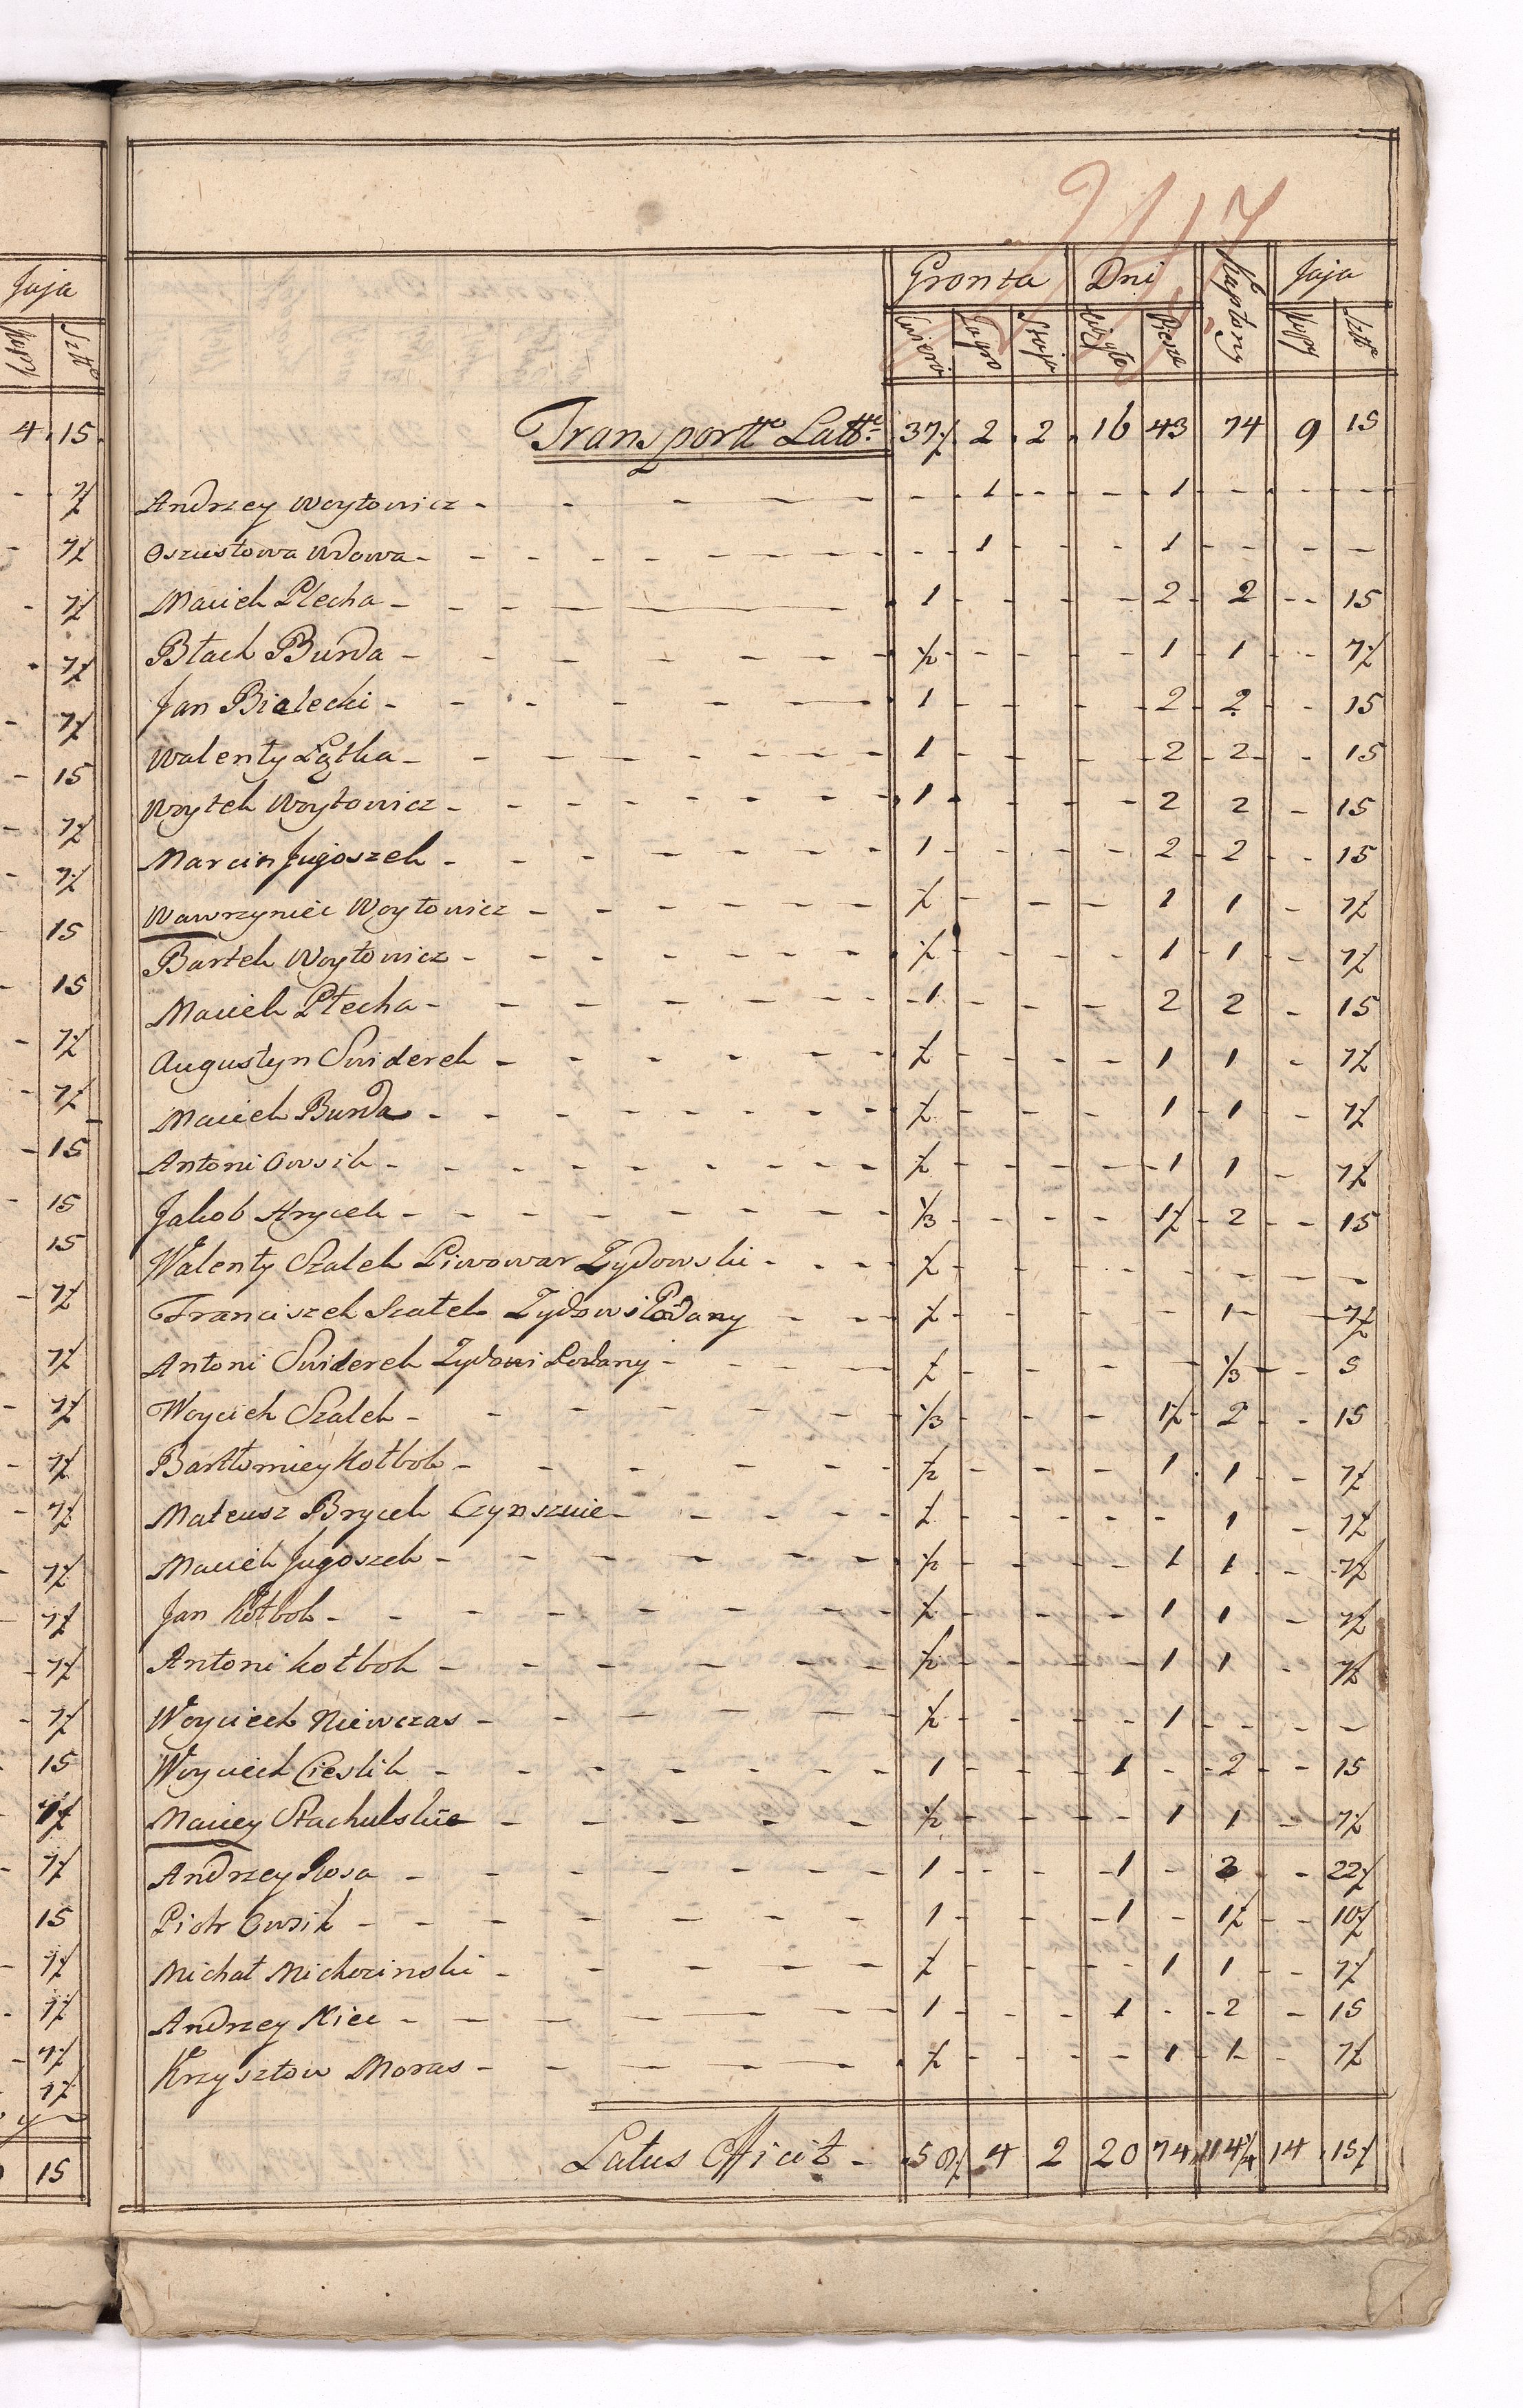 Jaja
Kopy Sztk
4 15
7½
7½
7½
7½
7½
15
7½
7½
15
15
7½
7½
15
15
15
7½
7½
7½
7½
7½
7½
7½
7½
7½
15
7½
7½
15
7½
7½
7½
7½
15
Gronta Dni Kapłony Jaja
Ćwierci Zagro Staja Ciągłe Piesze Kopy Sztk
Transportte Latte 37½ 2 2 16 43 74 9 15
Andrzey Woytowicz - - 1 - - 1 - - -
Oszustowa Wdowa - - 1 - - 1 - - -
Maciek Plecha - 1 - - - 2 2 - 15
Błach Burda - ½ - - - 1 1 - 7½
Jan Bialecki - 1 - - - 2 2 - 15
Walenty Lątka - 1 - - - 2 2 - 15
Woytek Woytowicz - 1 - - - 2 2 - 15
Marcin Jugoszek - 1 - - - 2 2 - 15
Wawrzyniec Woytowicz - ½ - - - 1 1 - 7½
Bartek Woytowicz - ½ - - - 1 1 - 7½
Maciek Płecha - 1 - - - 2 2 - 15
Augustyn Swiderek - ½ - - - 1 1 - 7½
Maciek Burda - ½ - - - 1 1 - 7½
Antoni Owsik - ½ - - - 1 1 - 7½
Jakob Hrycek - ⅓ - - - 1½ 2 - 15
Walenty Szalek Piwowar Zydowski - ½ - - - - - - -
Franciszek Scałek Zydows Poddany - ½ - - - - 1 - 7½
Antoni Swiderek Zydows Poddany - ½ - - - - ⅓ - 5
Woyciek Szalek - ⅓ - - - 1½ 2 - 15
Bartłomiey Kołbok - ½ - - - 1 1 - 7½
Mateusz Brycek Czynszuie - ½ - - - - 1 - 7½
Maciek Jugoszek - ½ - - - 1 1 - 7½
Jan Kołbok - ½ - - - 1 1 - 7½
Antoni Kołbok - ½ - - - 1 1 - 7½
Woyciech Niewczas - ½ - - - 1 - - -
Woyciech Cieslik - 1 - - 1 - 2 - 15
Maciey Stachulskie - ½ - - - 1 1 - 7½
Andrzey Kosa - 1 - - 1 - 3 - 22½
Piotr Owsik - 1 - - 1 - 1½ - 10½
Michał Michocinski - ½ - - - 1 1 - 7½
Andrzey Kiec - 1 - - 1 - 2 - 15
Krzysztow Moras - ½ - - - 1 1 - 7½
Latus Efficit - 4 2 20 74 14 15½